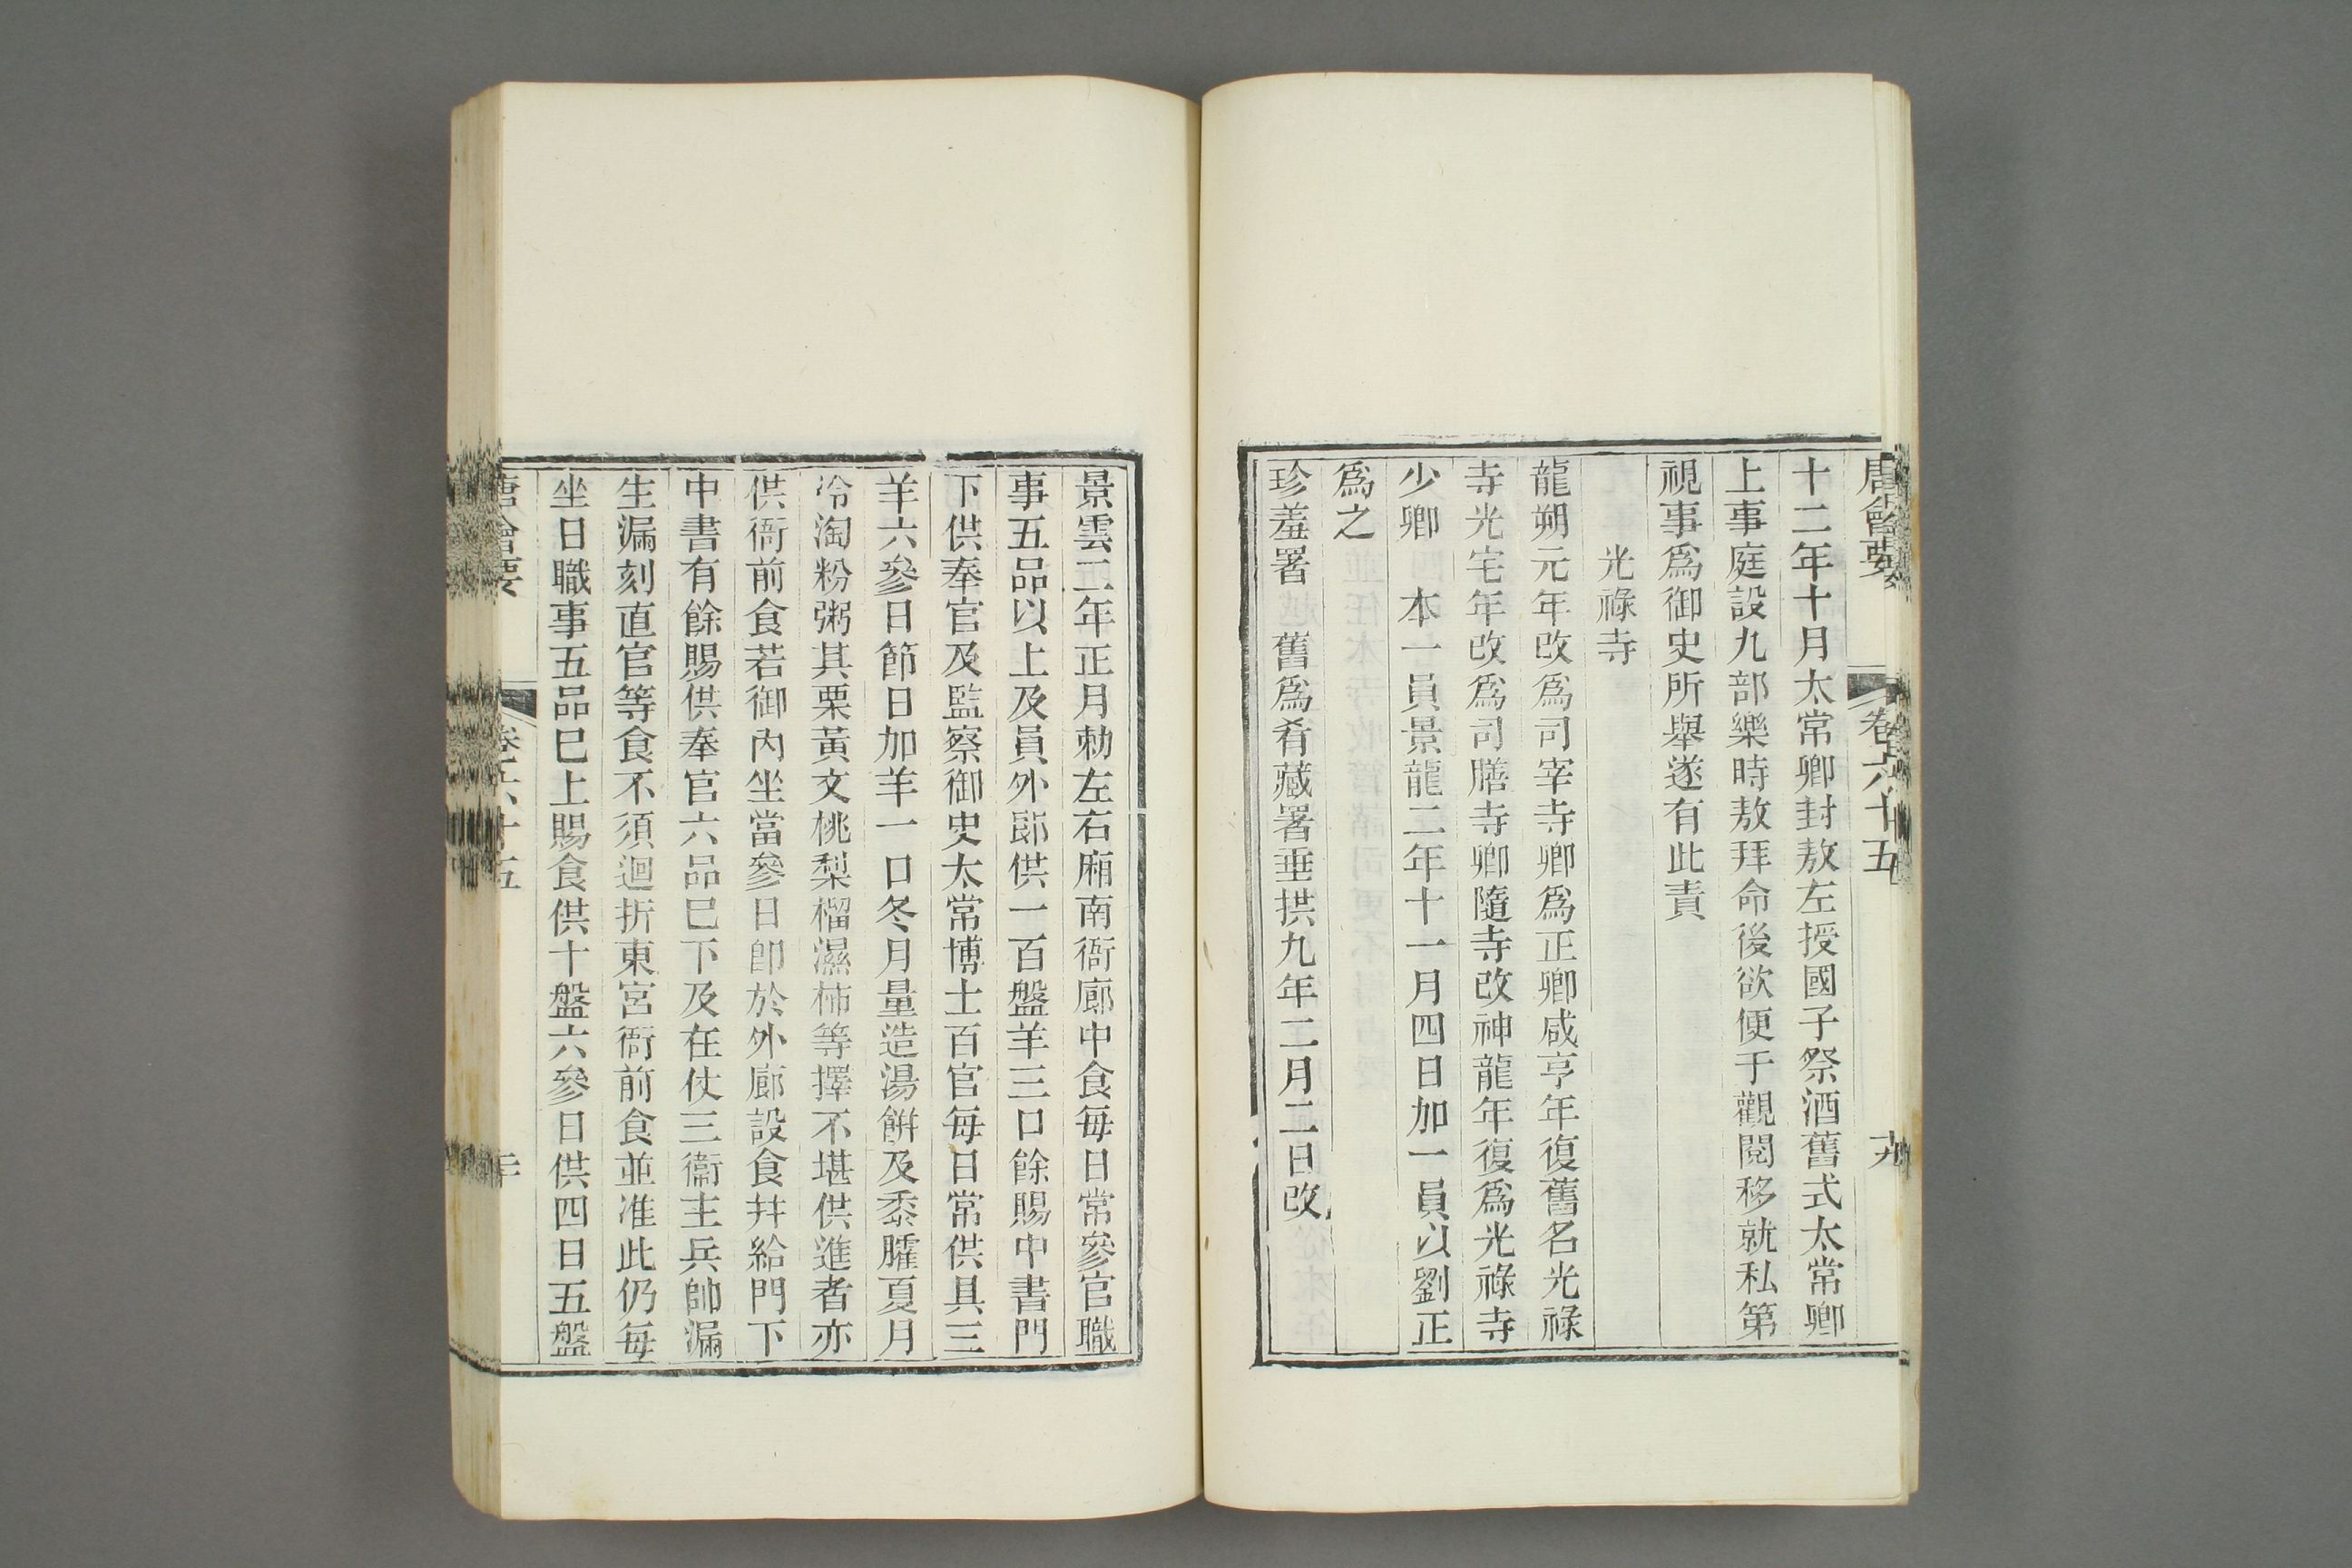 唐會要 卷六十五 十九
十二年十月太常卿封敖左授國子祭酒舊式太常卿
上事庭設九部樂時敖拜命後欲便于觀閱移就私第
視事爲御史所舉遂有此責
光祿寺
龍朔元年改爲司宰寺卿爲正卿咸亨年復舊名光祿
寺光宅年改爲司膳寺卿隨寺改神龍年復爲光祿寺
少卿 本一員景龍二年十一月四日加一員以劉正
爲之
珍羞署 舊爲肴藏署垂拱九年二月二日改
景雲二年正月勅左右廂南衙廊中食每日常參官職
事五品以上及員外郎供一百盤羊三口餘賜中書門
下供奉官及監察御史太常博士百官每日常供具三
羊六參日節日加羊一口冬月量造湯餅及黍臛夏月
冷淘粉粥其栗黃文桃梨榴濕柿等擇不堪供進者亦
供衙前食若御內坐當參日卽於外廊設食幷給門下
中書有餘賜供奉官六品巳下及在仗三衞主兵帥漏
生漏刻直官等食不須迴折東宮衙前食並准此仍每
坐日職事五品巳上賜食供十盤六參日供四日五盤
唐會要 卷六十五